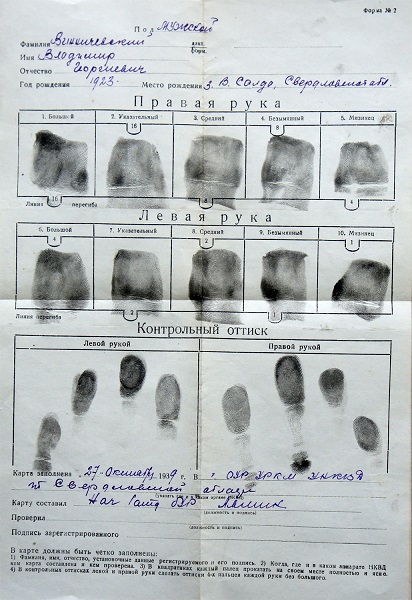 Форма № 2
Пол Мужской
Фамилия Винничевский
клич.
Имя Владимир
Отчество Георгиевич
Год рождения 1923. Место рождения г. В. Салда, Свердловской обл.
Правая рука
1. Большой 2. Указательный 3. Средний 4. Безымянный 5. Мизинец
16 8
16 8 4
Линия перегиба
Левая рука
6. Большой 7. Указательный 8. Средний 9. Безымянный 10. Мизинец
4 2 1
2 1
Линия перегиба
Контрольный оттиск
Левой рукой Правой рукой
Карта заполнена 27. Октября 1939 г. В ОУР УРКМ УНКВД
по Свердловской области
Карту составил Нач
(должность и подпись)
Проверил
(должность и подпись)
Подпись зарегистрированного
В карте должны быть четко заполнены:
1) Фамилия, имя, отчество, установочные данные регистрируемого и его подпись. 2) Когда, где и в каком аппарате НКВД
кем карта составлена и кем проверена. 3) В квадратиках каждый палец прокатать на своем месте полностью и ясно.
4) В контрольных оттисках левой и правой руки сделать оттиски 4-х пальцев каждой руки без большого.